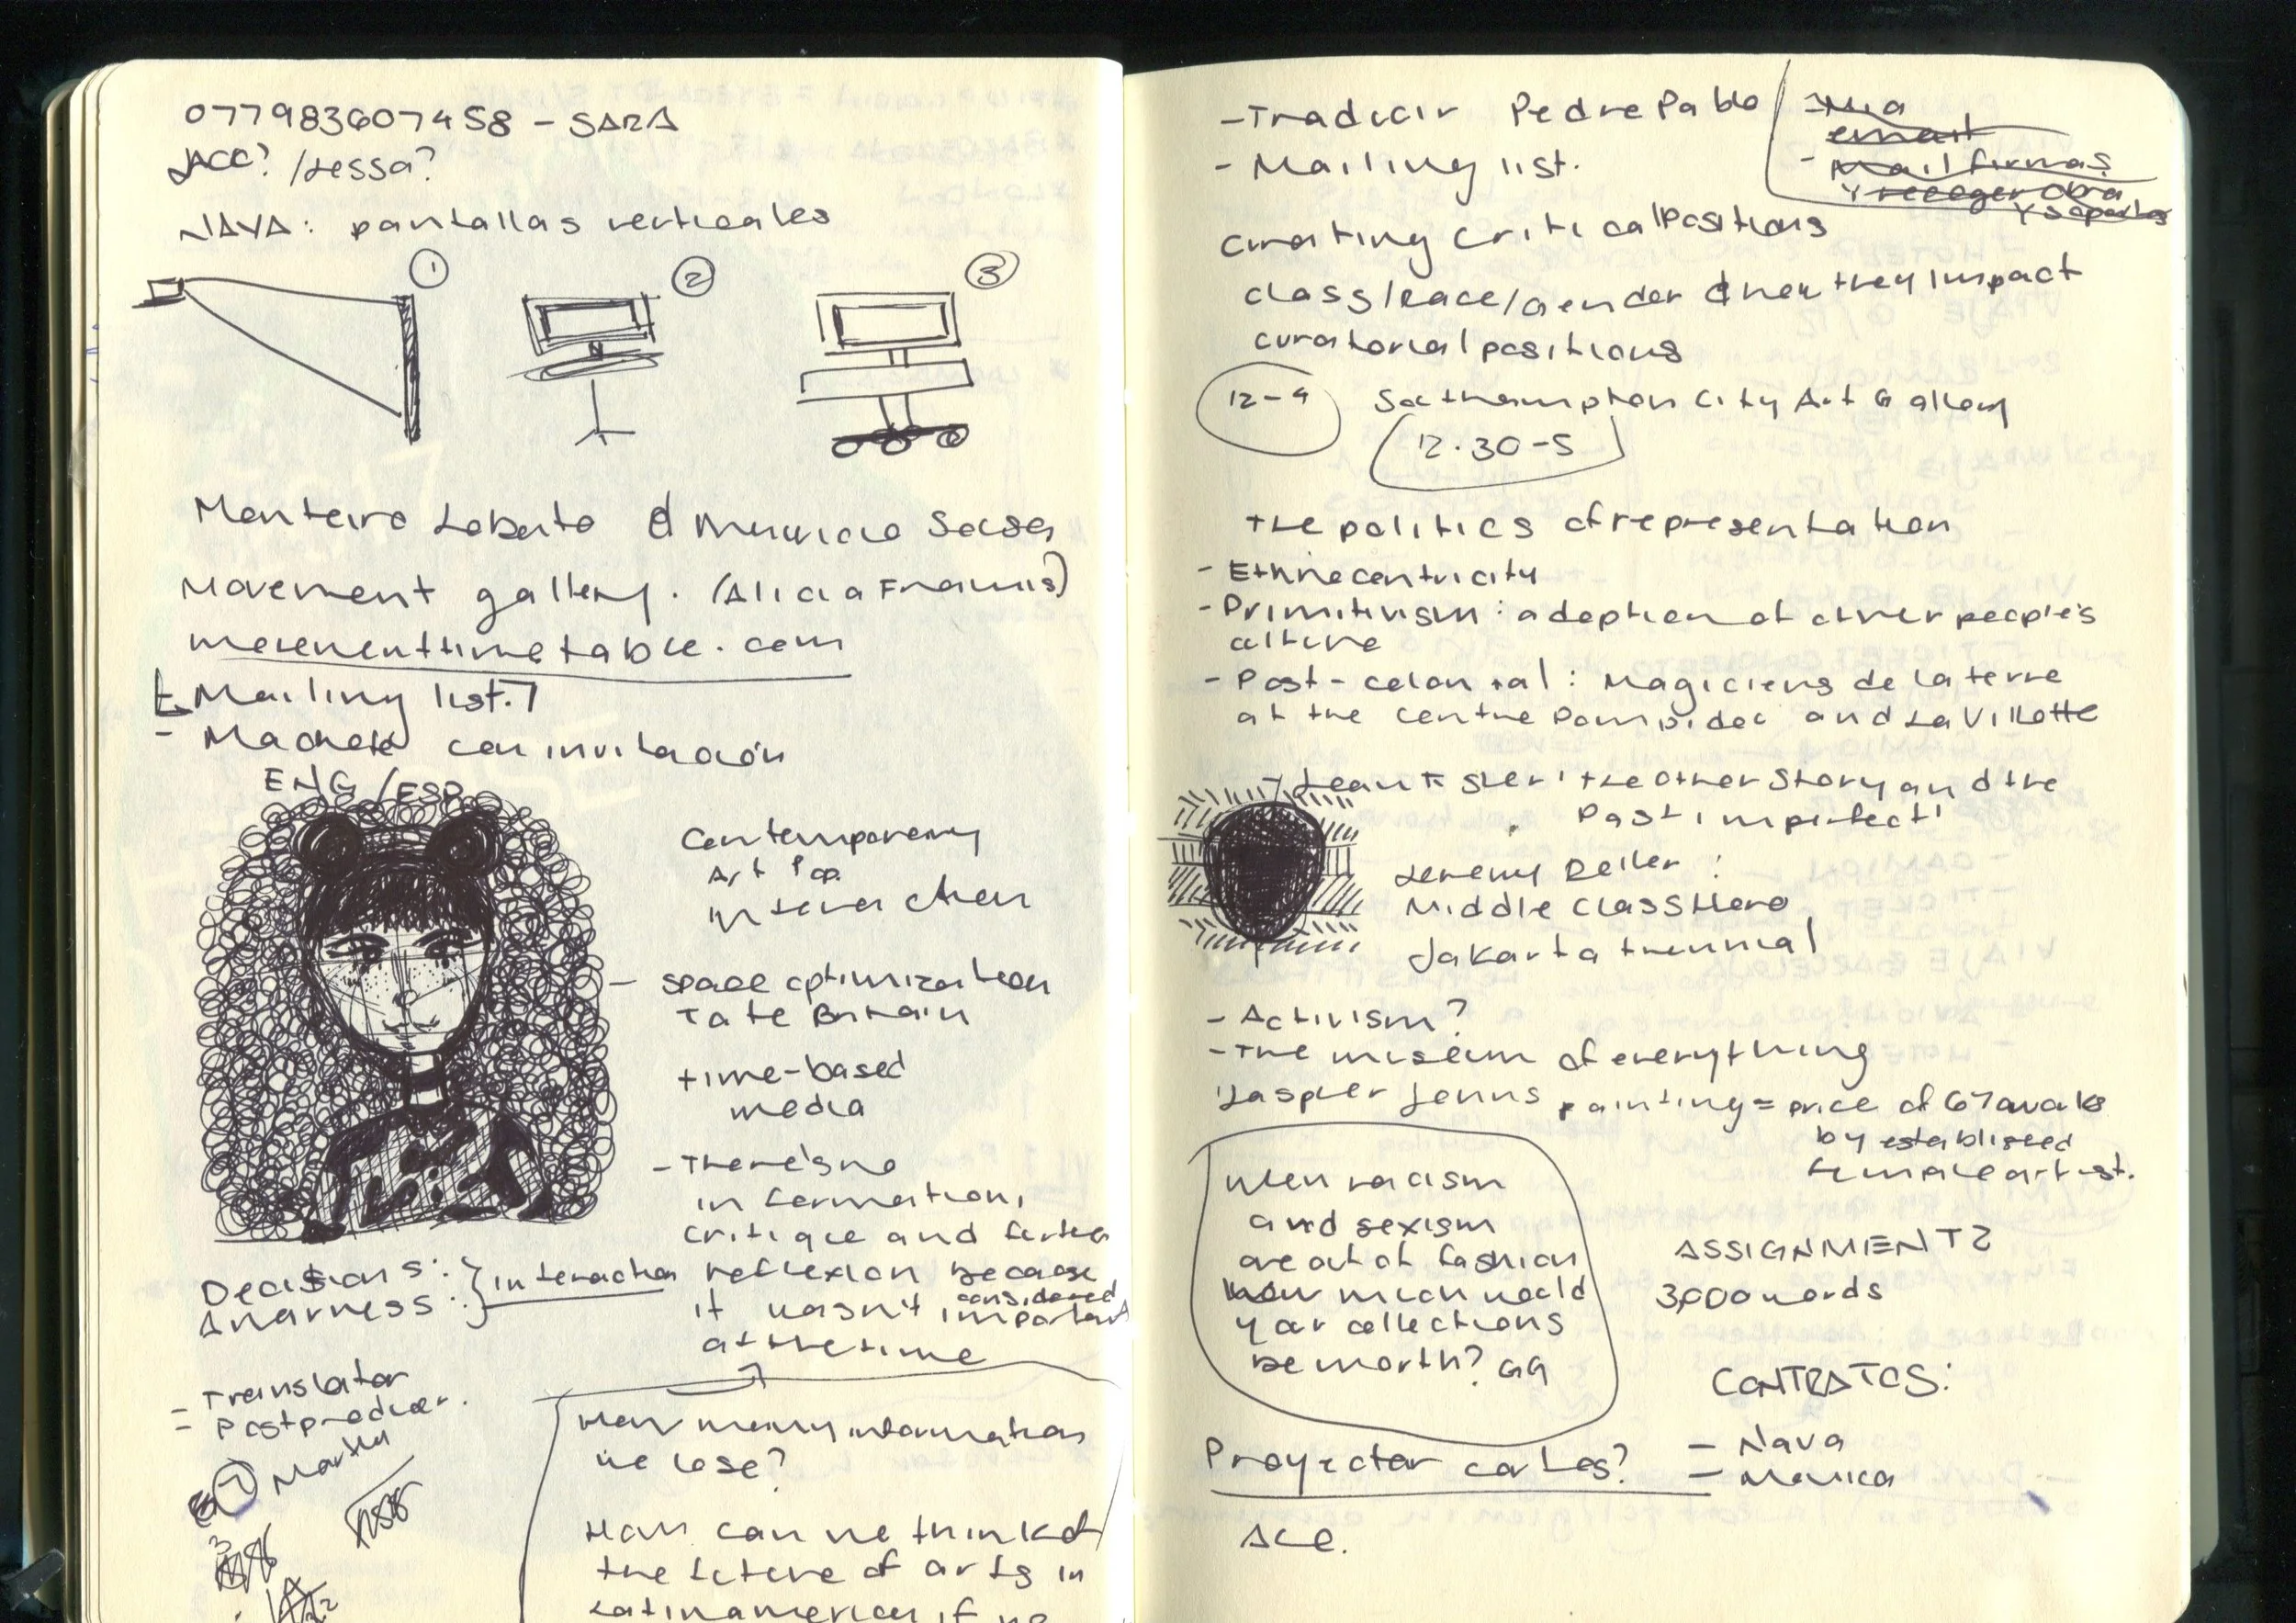 077983607458 - SARA
JACC? / Lessa?
NAVA: pantallas verticales
1
2
3
Monteiro Lobato &
Movement gallery. (Alicia Framis)
movementtimetable.com
Mailing list.
- Machete con invitación
ENG/ESP
Contemporary
Art
interaction
- space optimization
Tate Britain
time-based
media
- There's no
information,
critique and further
reflexion because
it wasn't considered important
at the time
Decisions:
Awarness: } interaction
- Translator
- Postproducer.
Martha
How many information
we lose?
How can we think of
the future of arts in
Latinamerica if we
- Traducir Pedro Pablo
- Mailing list.
- Mia
email
- Mail firmas
y recoger obra
y soportes
Curating critical Positions
class/race/gender & how they impact
curatorial positions
12-4
Southampton City Art Gallery
12.30-5
The politics of representation
- Ethnocentricity
- Primitivism: adoption of other people's
culture
- Post-colonial: Magiciens de la terre
at the centre Pompidou and La Villette
- Jean Fisher: the other story and the
Past imperfect
Jeremy Deller:
Middle Class Hero
Jakarta triennial
- Activism?
- The museum of everything
Jasper Jonns painting = price of 67 awaks
by establisheed
female artist.
When racism
and sexism
are out of fashion
how much would
your collections
be worth? GG
ASSIGNMENT 2
3,000 words
CONTRATOS:
- Nava
- Monica
Proyector carlos?
ACE.